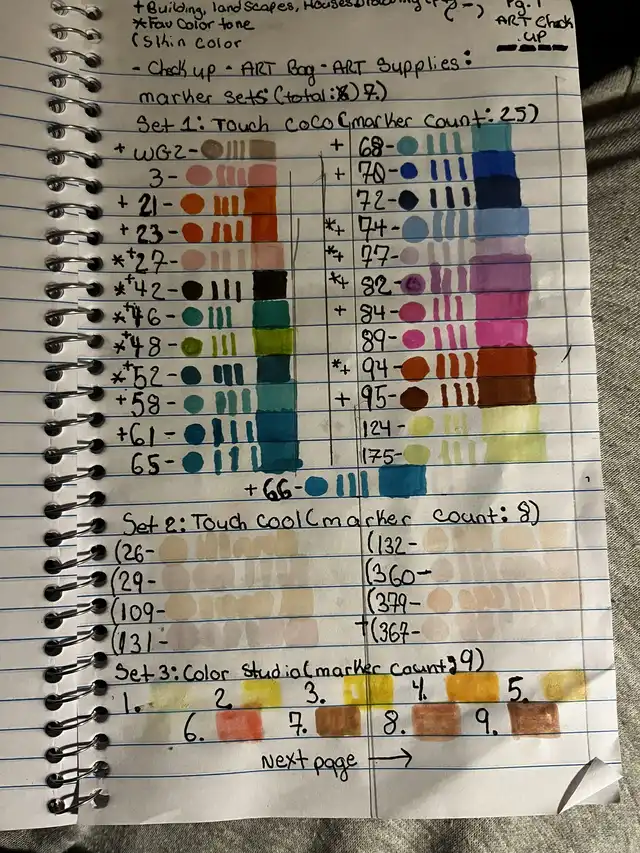 +Building, landscapes, Houses Drawing
Pg. 1
*Fav Color tone
ART Check
(Skin color
up
- Check up - ART Bag - ART Supplies:
marker sets (total: 7.)
Set 1: Touch coco (marker count: 25)
+ WG2- + 68-
3- + 70-
+ 21- 72-
+ 23- *+ 74-
*+27- *+ 77-
*+42- *+ 82-
*+46- + 84-
*+48- 89-
*+52- *+ 94-
+58- + 95-
+61- 124-
65- 175-
+66-
Set 2: Touch cool (marker count: 8)
(26- (132-
(29- (360-
(109- (379-
(131- +(367-
Set 3: Color Studio (marker count: 9)
1. 2. 3. 4. 5.
6. 7. 8. 9.
Next page →